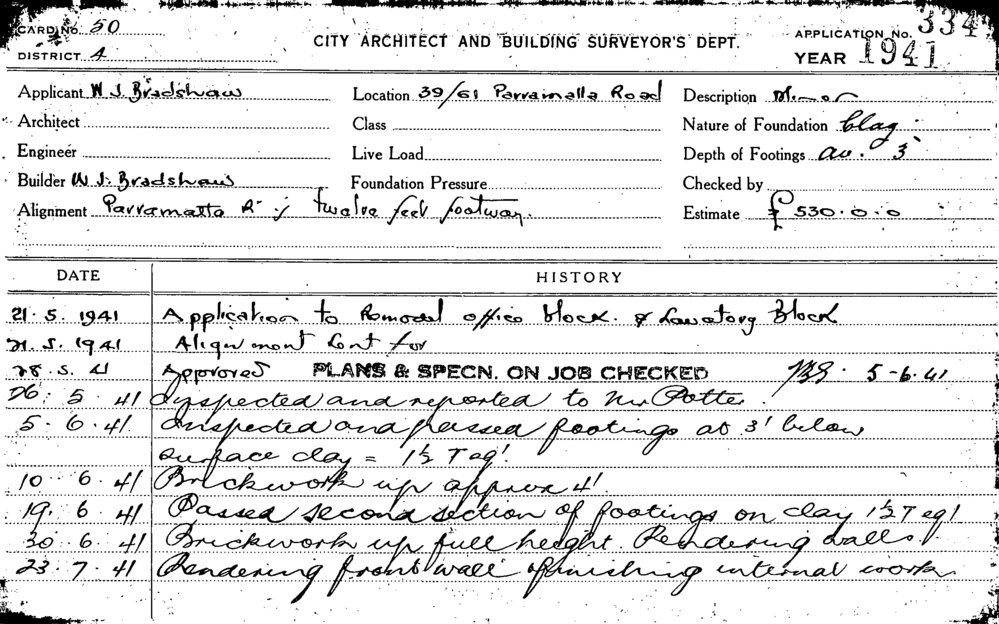 CARD No. 50
DISTRICT 4
CITY ARCHITECT AND BUILDING SURVEYOR'S DEPT.
APPLICATION No. 334
YEAR 1941
Applicant W J Bradshaw
Location 39/61 Parramatta Road
Description Minor
Architect
Class
Nature of Foundation Clay
Engineer
Live Load
Depth of Footings av. 3'
Builder W J. Bradshaw
Foundation Pressure
Checked by
Alignment Parramatta Rd twelve feet footway.
Estimate £ 530.0.0
DATE HISTORY
21.5.1941 Application to Remodel office block. & Lavatory Block
21.5.1941 Alignment sent for
28.5.41 Approved PLANS & SPECN. ON JOB CHECKED 5-6-41
26.5.41 Inspected and reported to Mr Potter.
5.6.41 Inspected and passed footings at 3' below
surface clay = 1½ T sq'.
10.6.41 Brickwork up approx 4'
19.6.41 Passed second section of footings on clay 1½ T sq'
30.6.41 Brickwork up full height. Rendering walls.
23.7.41 Rendering front wall & finishing internal work.